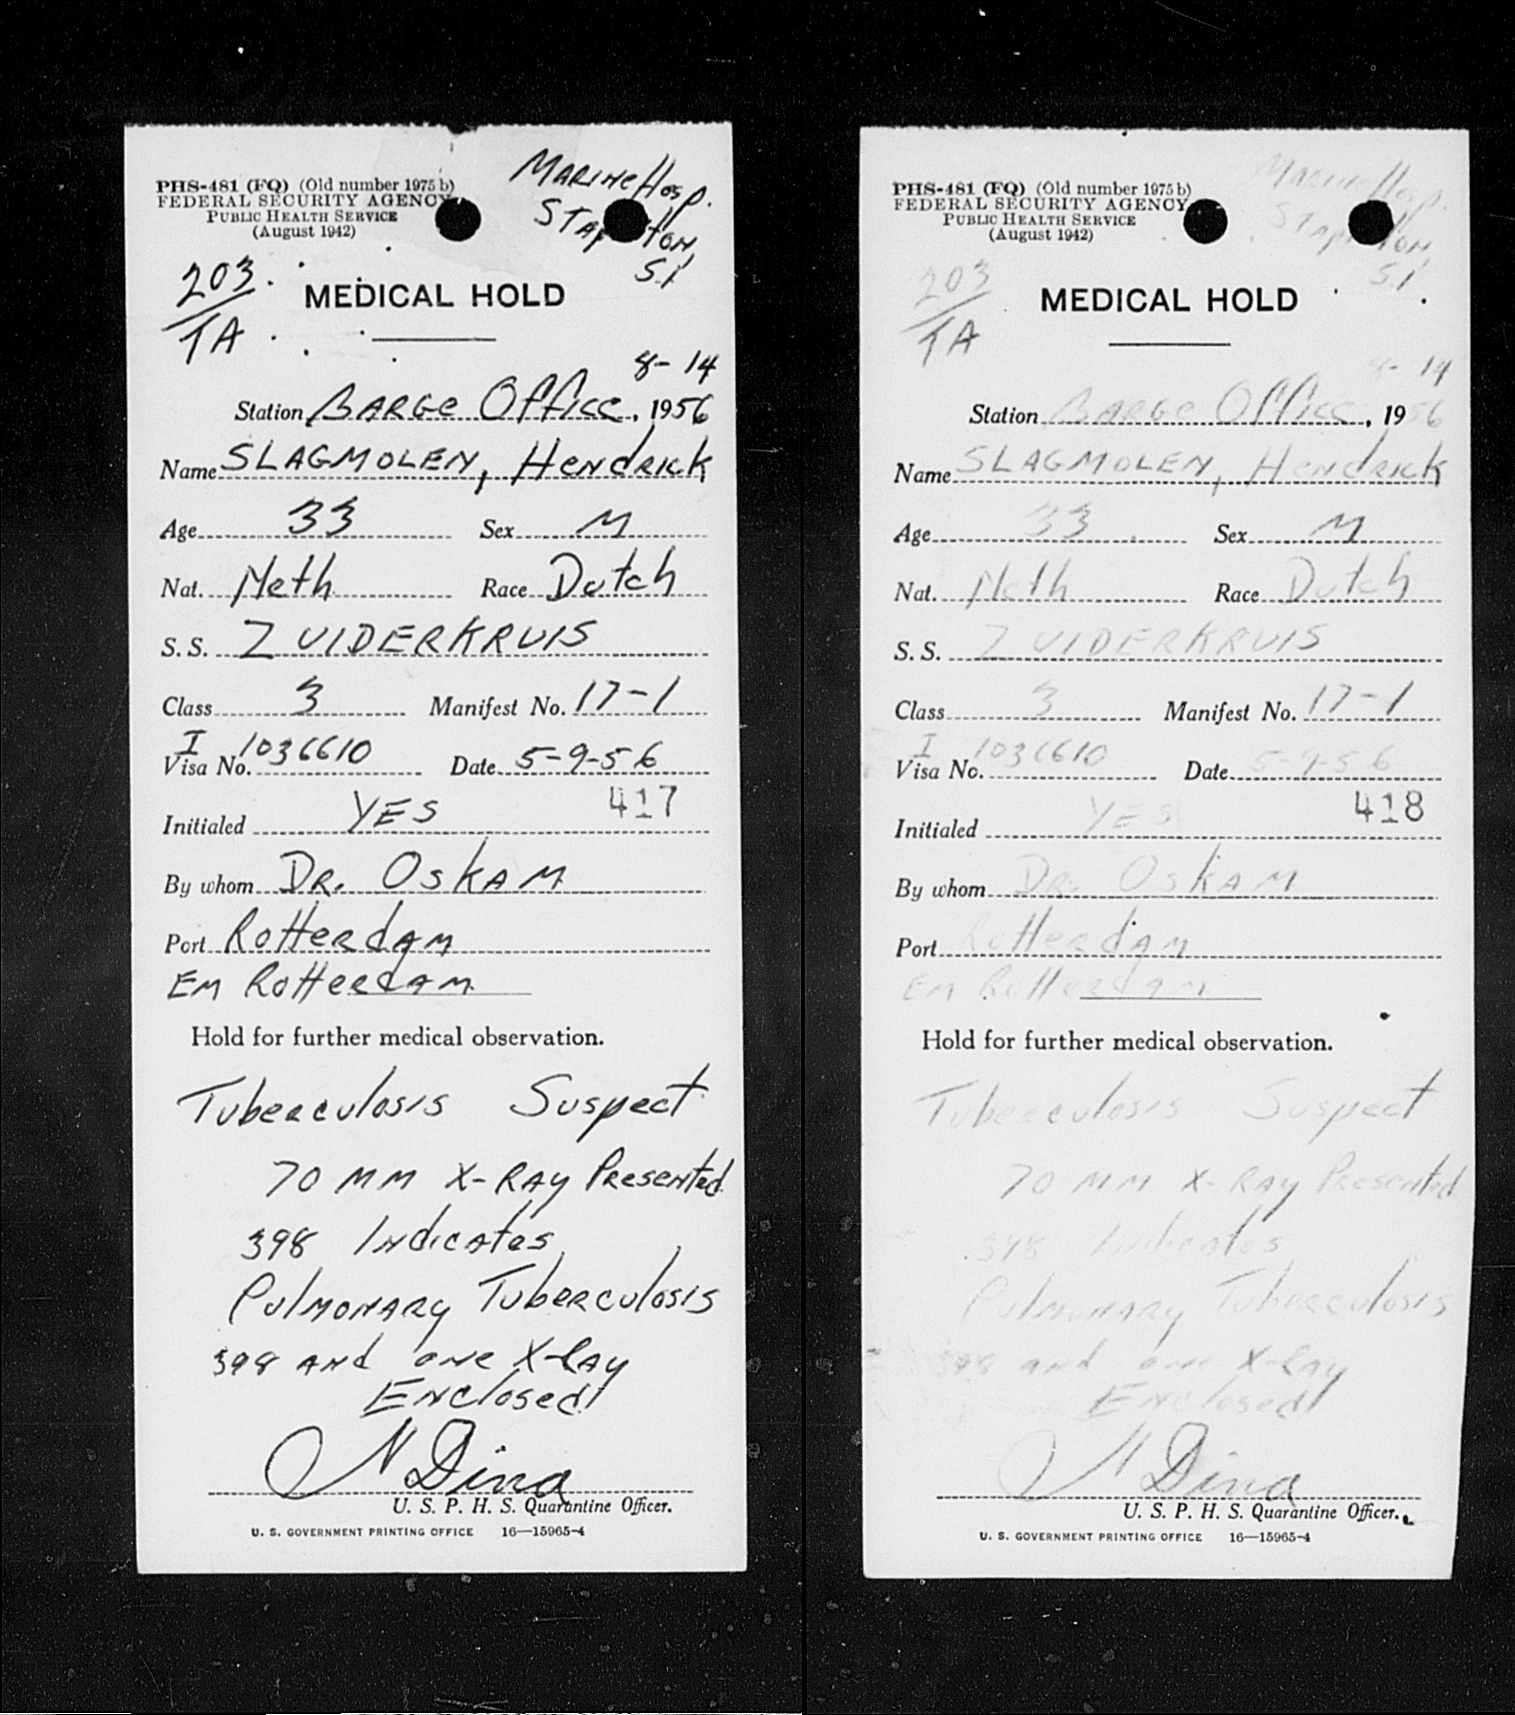 PHS-481 (FQ) (Old number 1975 b)
FEDERAL SECURITY AGENCY
PUBLIC HEALTH SERVICE
(August 1942)
MARINE Hosp.
STAPLETON,
S.I
203
TA
MEDICAL HOLD
8-14
Station BARGE OFFICE, 1956
Name SLAGMOLEN, HENDRICK
Age 33 Sex M
Nat. Neth Race Dutch
S. S. ZUIDERKRUIS
Class 3 Manifest No. 17-1
I
Visa No. 1036610 Date 5-9-56
417
Initialed YES
By whom DR. OSKAM
Port Rotterdam
EM Rotterdam
Hold for further medical observation.
Tuberculosis Suspect
70 MM X-RAY Presented
398 Indicates
Pulmonary Tuberculosis
398 and one X-Ray
Enclosed
N Dina
U. S. P. H. S. Quarantine Officer.
U. S. GOVERNMENT PRINTING OFFICE 16—15965-4
PHS-481 (FQ) (Old number 1975 b)
FEDERAL SECURITY AGENCY
PUBLIC HEALTH SERVICE
(August 1942)
MARINE Hosp.
STAPLETON,
S.I
203
TA
MEDICAL HOLD
8-14
Station BARGE OFFICE, 1956
Name SLAGMOLEN, HENDRICK
Age 33 Sex M
Nat. Neth Race Dutch
S. S. ZUIDERKRUIS
Class 3 Manifest No. 17-1
I
Visa No. 1036610 Date 5-9-56
418
Initialed YES
By whom DR. OSKAM
Port Rotterdam
EM Rotterdam
Hold for further medical observation.
Tuberculosis Suspect
70 MM X-RAY Presented
398 Indicates
Pulmonary Tuberculosis
398 and one X-Ray
Enclosed
N Dina
U. S. P. H. S. Quarantine Officer.
U. S. GOVERNMENT PRINTING OFFICE 16—15965-4